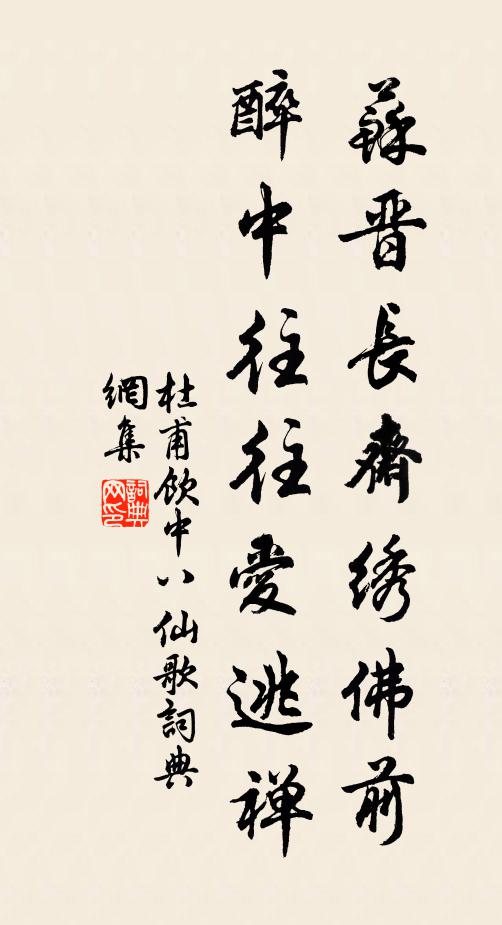 蘇晉長齋綉佛前
醉中往往愛逃禅
杜甫飲中八仙歌詞典
網集
詞典網印